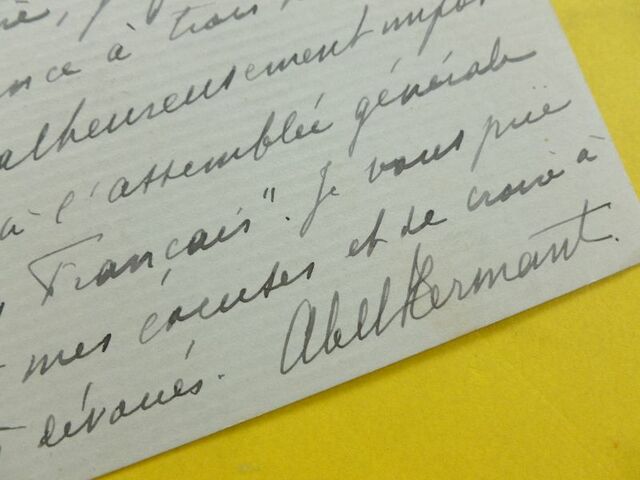 ance à trois
alheureusement impos
à l'assemblée générale
Français". Je vous prie
mes excuses et de croire à
dévoués. Abel Hermant.